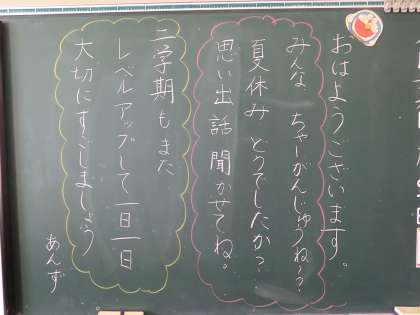 おはようございます。
みんな ちゃーがんじゅうね？
夏休み どうでしたか？
思い出話 聞かせてね。
二学期もまた
レベルアップして一日一日
大切にすごしましょう
あんず